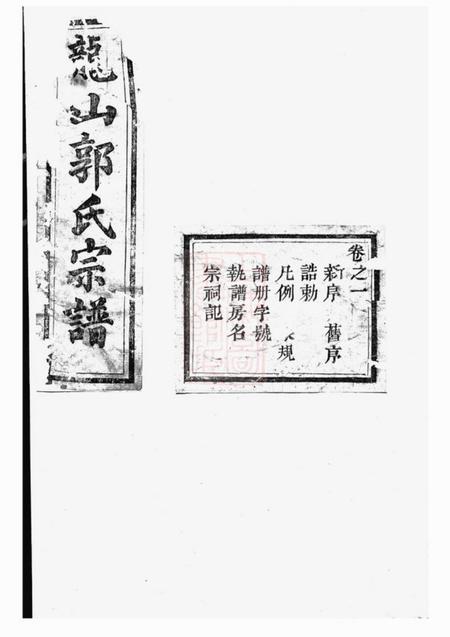 龍山郭氏宗譜
卷之一
新序 舊序
誥勅
凡例 規
譜册字號
執譜房名
宗祠記